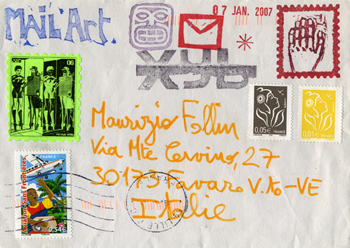 MAIL'Art.
07 JAN. 2007
Maurizio Follin
Via Mte Cervino, 27
30173 Favaro V.to-VE
Italie
FRANCE
0,05€
0,01€
0,54€